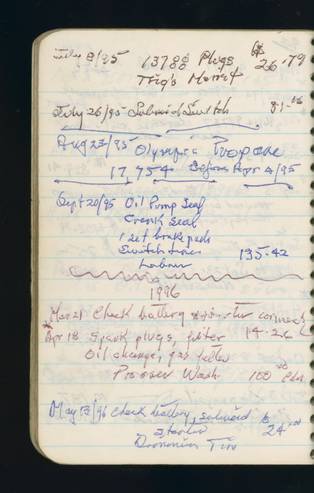 July 8/95 13788 Plugs $
26.79
July 26/95 Solenoid Switch 81.
Aug 23/95 Olympic Propane
17,754 Before Apr 4/95
Sept 20/95 Oil Pump Seal
Crank Seal
1 set brake pads
Switch
Labour 135.42
1996
Mar 21 Check battery connect
Apr 18 Spark plugs, filter 14.26
Oil change, gas filter
Power Wash 100
May 3/96 Check battery, solenoid $
Starter 24
Tire